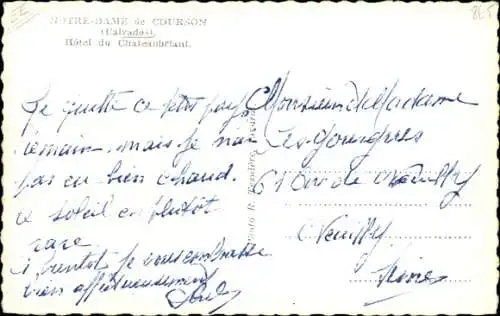 NOTRE-DAME de COURSON
(Calvados)
Hôtel du Chateaubriant.
Je quitte ce petit pays
demain, mais je n'ai
pas eu bien chaud.
ce soleil est plutôt
rare
à bientôt je vous embrasse
bien affectueusement
Monsieur et Madame
61 Av de Neuilly
Neuilly
Seine